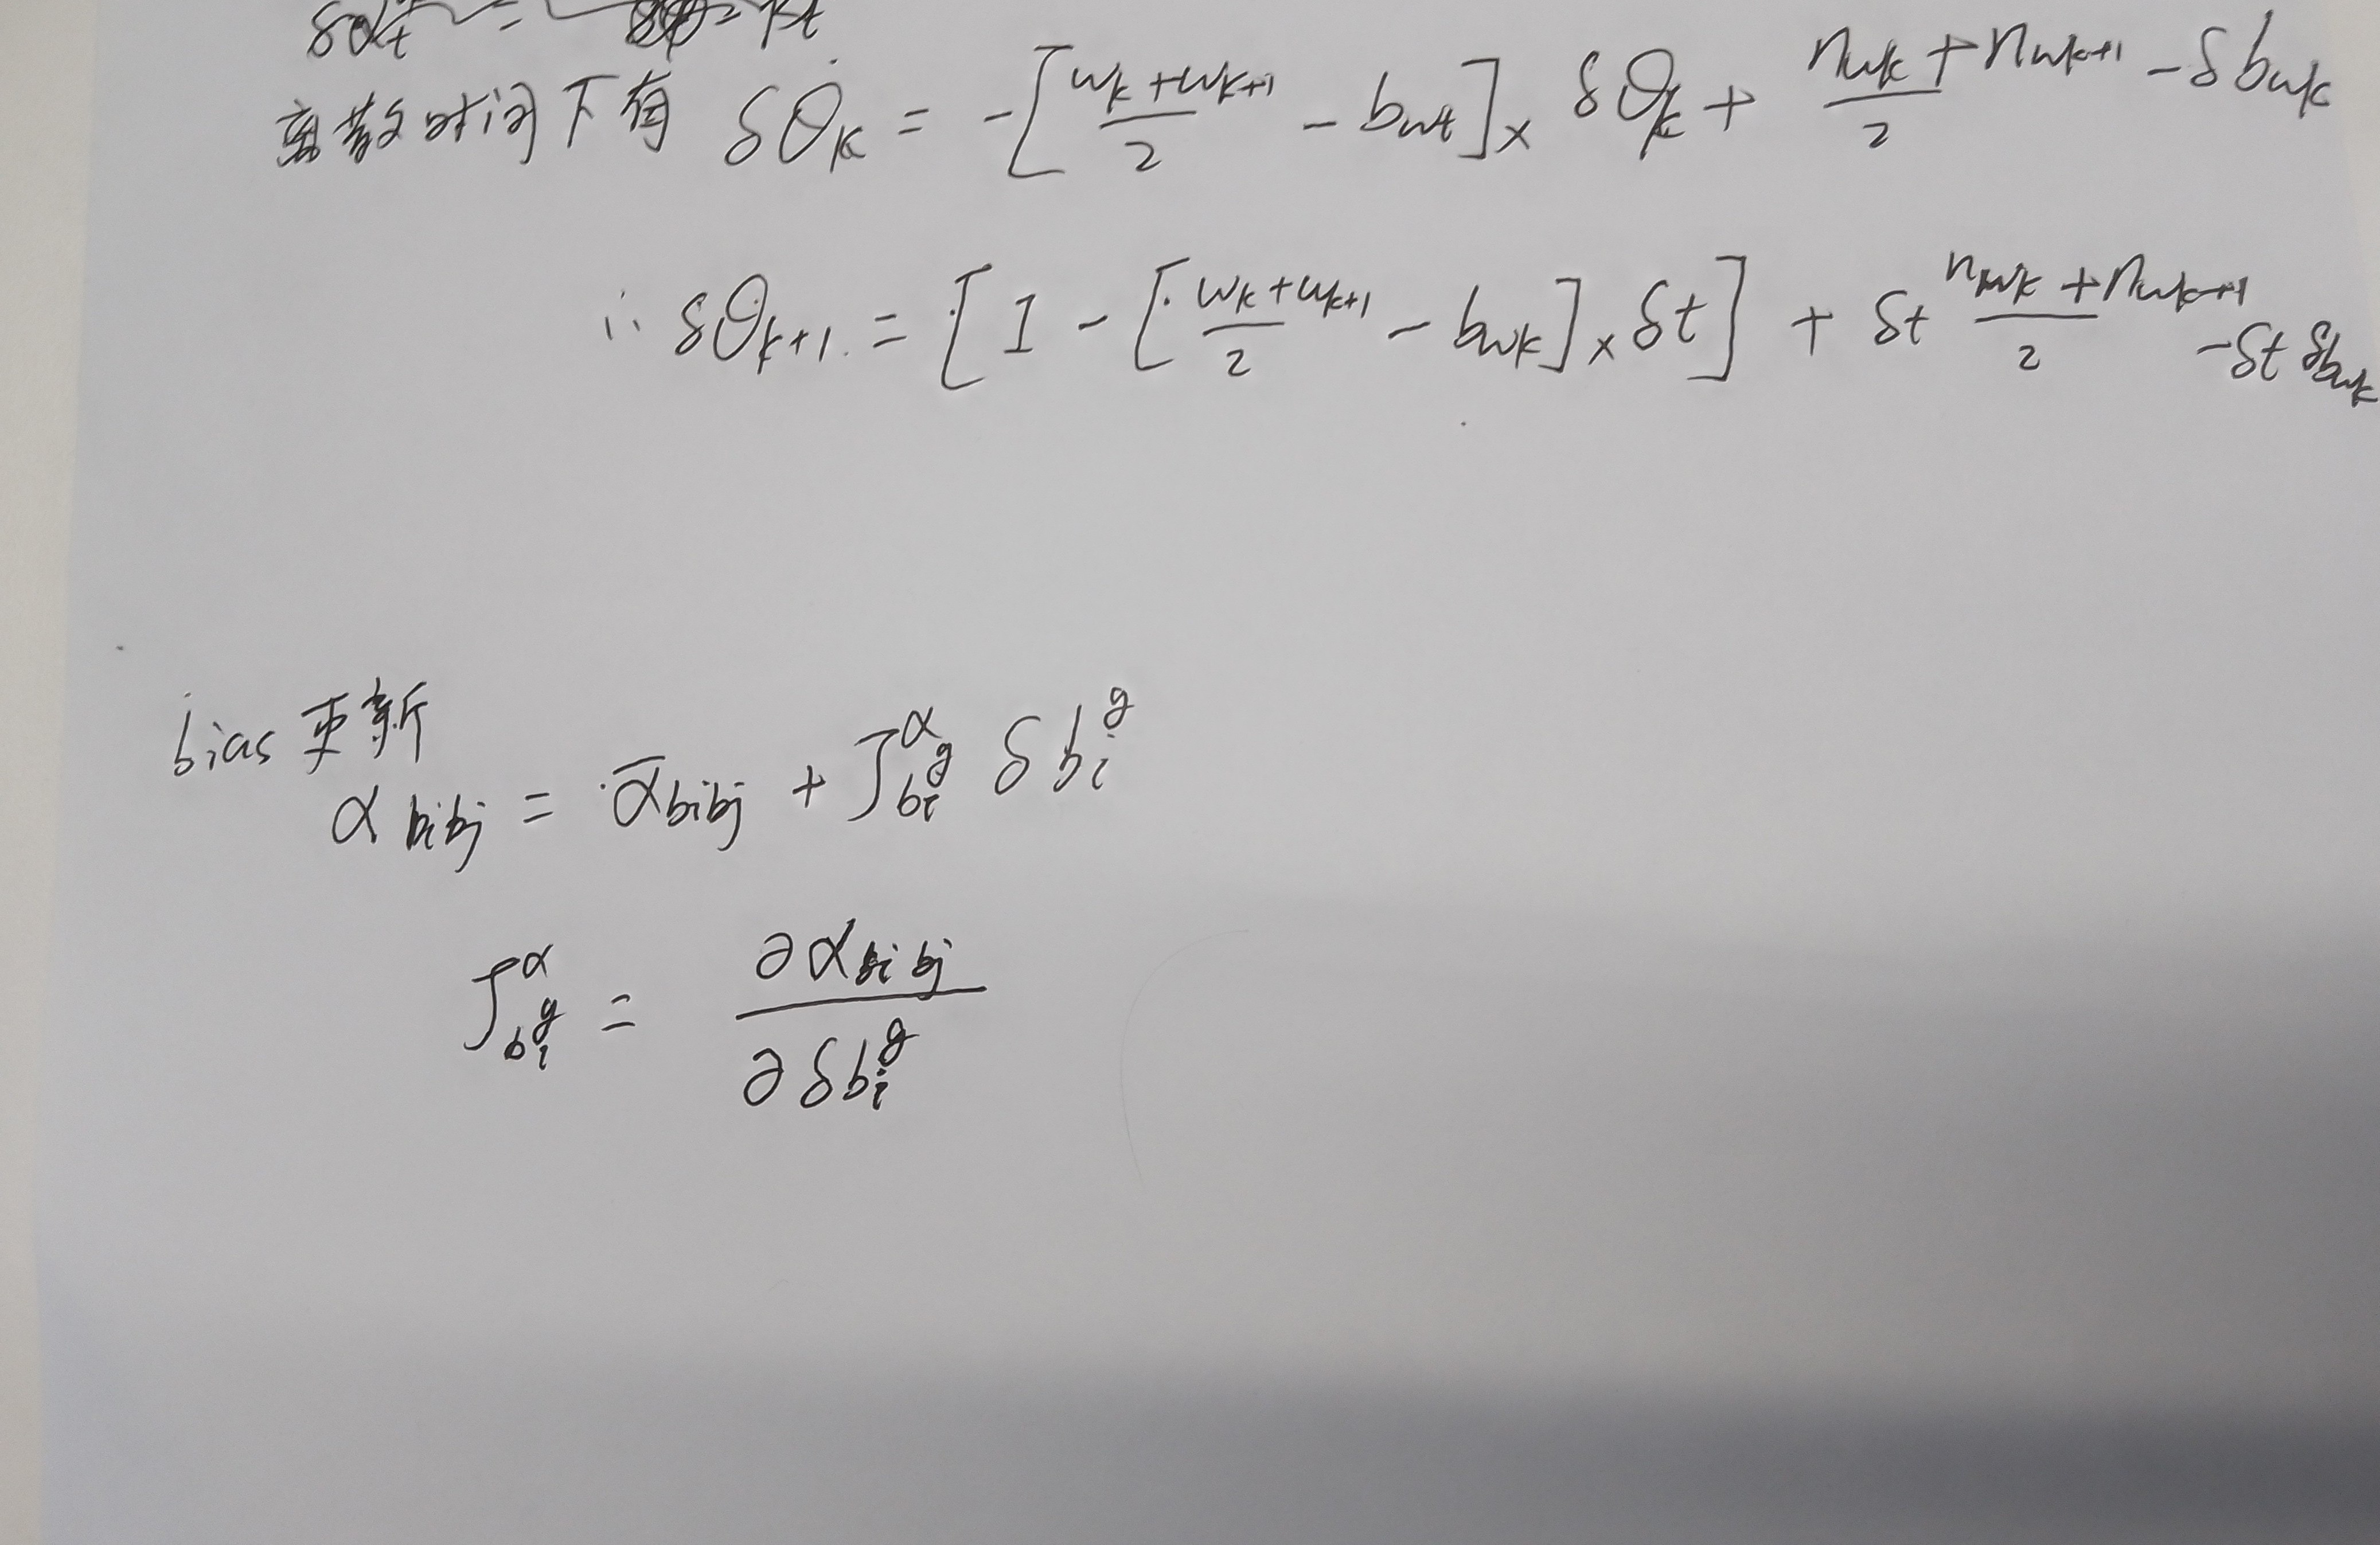 δα_t = = β_t
离散时间下有 δθ̇_k = -[(w_k+w_{k+1})/2 - b_{wt}]_× δθ_k + (n_{wk}+n_{wk+1})/2 - δb_{wk}
∴ δθ_{k+1} = [I - [(w_k+w_{k+1})/2 - b_{wk}]_× δt] + δt (n_{wk}+n_{wk+1})/2 - δt δb_{wk}
bias 更新
α_{bibj} = ᾱ_{bibj} + J^α_{b_i^g} δb_i^g
J^α_{b_i^g} = ∂α_{bibj} / ∂δb_i^g